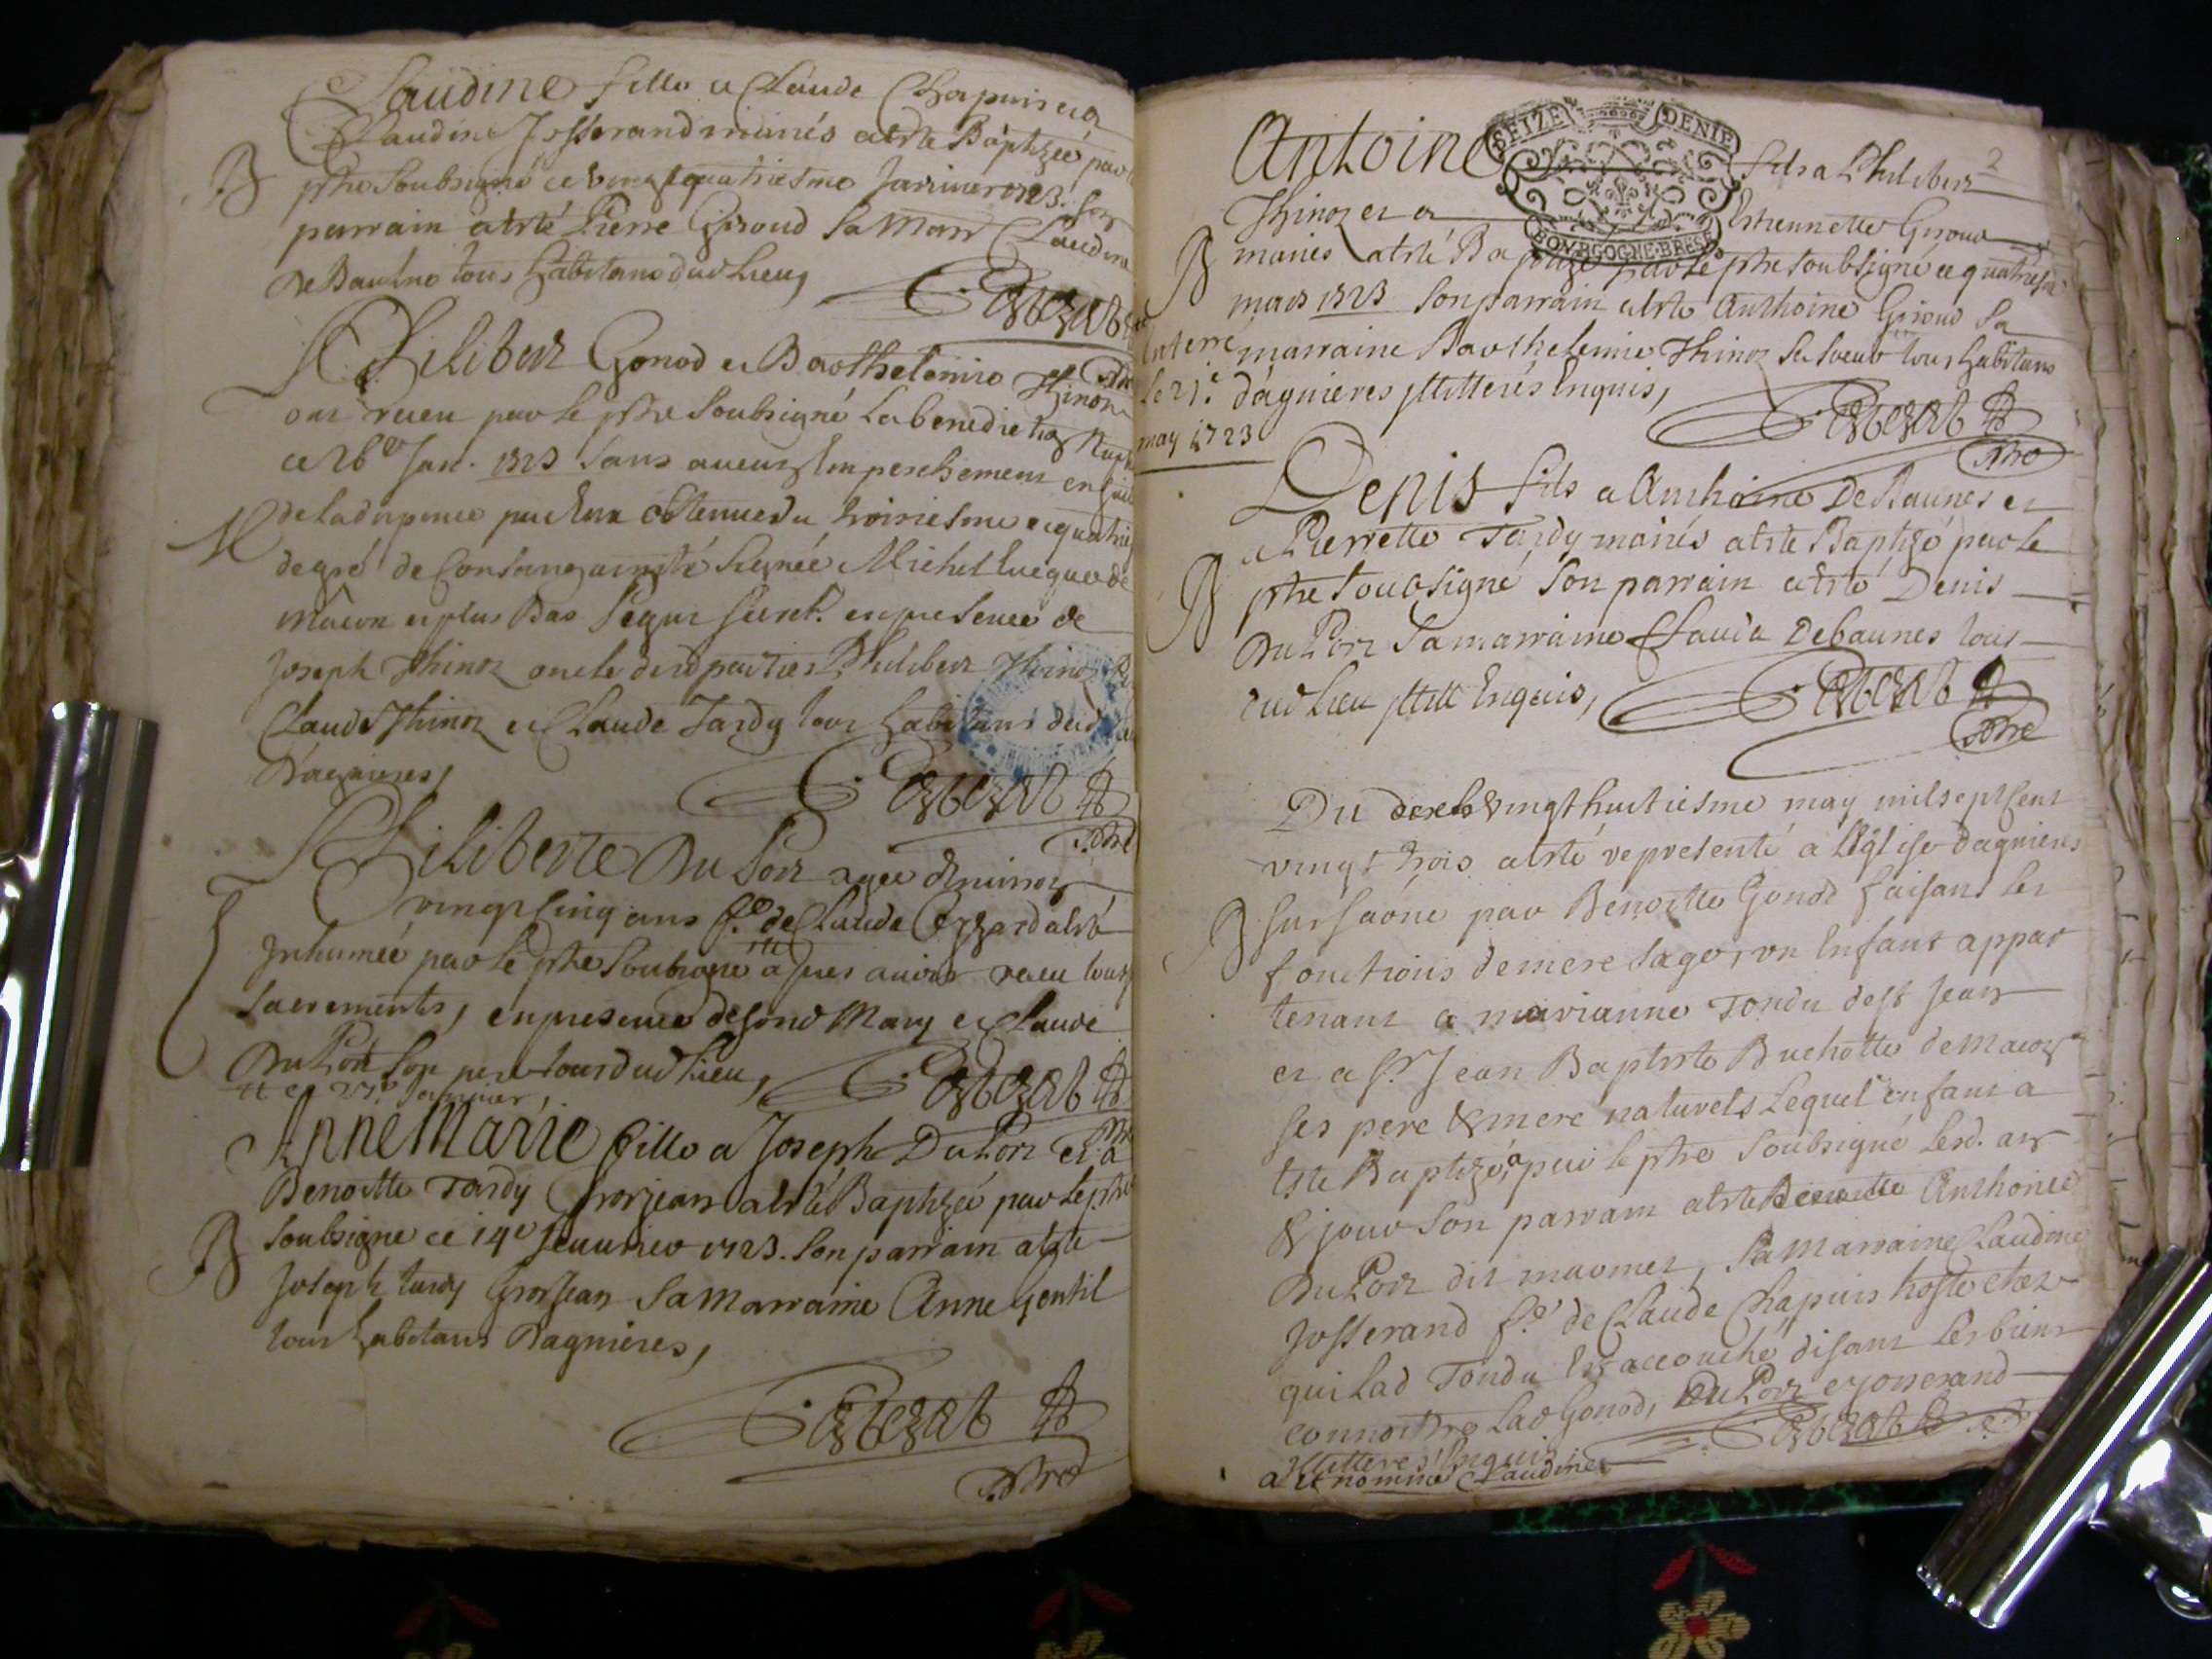 Claudine fille a Claude Chapuis et a
Claudine Josserand mariés a esté Baptizée par le
B
pbre soubsigné ce vingt quatriesme janvier 1723. son
parrain a esté Pierre Giroud sa Marr Claudine
De Baulne tous habitans dud Lieu,
Philibert Gonod et Barthelemie Thinon
ont receu par le pbre soubsigné la benediction nupt
ce 26e Jan. 1723 sans aucun Empeschement
M
de la dispence par Eux obtenue du troisiesme et quatrie
degré de Consanguinité signée Michel Eveque de
Mâcon et plus Bas Segur secret. en presence de
Joseph Thinon oncle desd parties Philibert Thinon
Claude Thinon et Claude Tardy tous habitans dud
D'agnieres,
pbre
Philiberte Du Port agée d'environ
vingt cinq ans fe. de Claude a esté
Inhumée par le pbre soubsigné apres avoir receu tous
sacrements, en presence de sond Mary et Claude
Du Port son pere tous dud Lieu,
# ce 27e Janvier,
Anne Marie fille a Joseph Du Port et a
Benoitte Tardy Grosjean a esté Baptizée par le pbre
B
soubsigne ce 14e feuvrier 1723. son parrain a esté
Joseph tardy Grosjean sa Marraine Anne Gentil
tous habitans Dagnieres,
pbre
SEIZE DENIE
BOURGOGNE·BRESS
2
Antoine fils a Philibert
Thinon et a Estiennette Giroud
B
mariés a esté Baptizé par le pbre soubsigné ce quatriesme
mars 1723 son parrain a esté Anthoine Giroud sa
marraine Barthelemie Thinon sa soeur tous habitans
d'agnieres Illitterés Enquis,
Enterré
le 21e
may 1723
pbre
Denis fils a Anthoine De Baunes et
a Pierrette Tardy mariés a esté Baptizé par le
B
pbre soubsigné son parrain a esté Denis
Du Port sa marraine Clauda Debaunes tous
dud Lieu Illitt Enquis,
pbre
Du vingthuitiesme may mil sept cent
vingt trois a esté representé a L'Eglise Dagnieres
B
sur saône par Benoitte Gonod faisant les
fonctions de mere sage, un Enfant appar
tenant a marianne Tondu de st Jean
et a sr. Jean Baptiste Buchotte de Macon
ses pere & mere naturels Lequel enfant a
Esté Baptizé par le pbre soubsigné lesd. an
& jour son parrain a esté Anthoine
Du Port dit maomet, sa Marraine Claudine
Josserand fe. de Claude Chapuis hoste chez
qui Lad Tondu Est accouché disant les bien
connoistre Lad Gonod, Du Port et Josserand
Illitterés Enquis
a et nommé Claudine